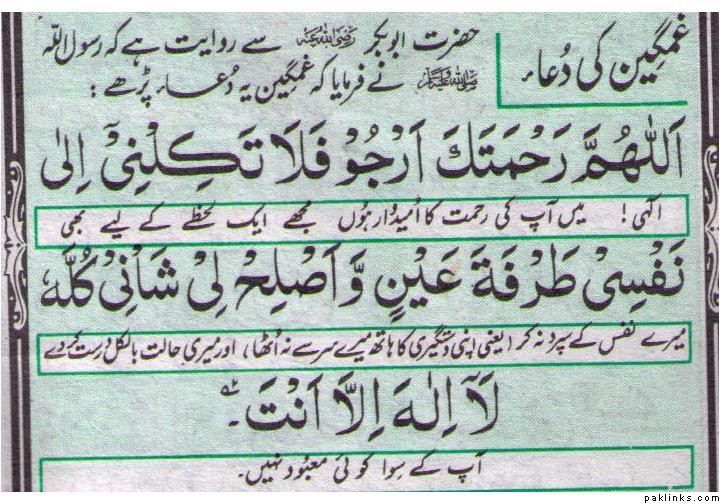 غمگین کی دُعاء
حضرت ابوبکر رضی اللہ عنہ سے روایت ہے کہ رسول اللہ
صلی اللہ علیہ وسلم نے فرمایا کہ غمگین یہ دُعاء پڑھے :
اَللّٰهُمَّ رَحْمَتَكَ اَرْجُوْ فَلَا تَكِلْنِیْۤ اِلٰی
الٰہی! میں آپ کی رحمت کا اُمیدوار ہُوں مجھے ایک لحظے کے لیے بھی
نَفْسِیْ طَرْفَةَ عَيْنٍ وَّاَصْلِحْ لِیْ شَاْنِیْ كُلَّهٗ
میرے نفس کے سپرد نہ کر (یعنی اپنی دستگیری کا ہاتھ میرے سر سے نہ اُٹھا) اور میری حالت بالکل درست کر دے
لَاۤ اِلٰهَ اِلَّا اَنْتَ۔
آپ کے سِوا کوئی معبود نہیں۔
paklinks.com